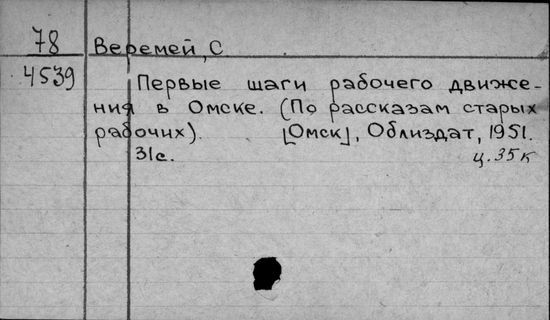 78 Веремей, С
4539 Первые шаги рабочего движе-
ния в Омске. (По рассказам старых
рабочих). [Омск], Облиздат, 1951.
31с. ц. 35к